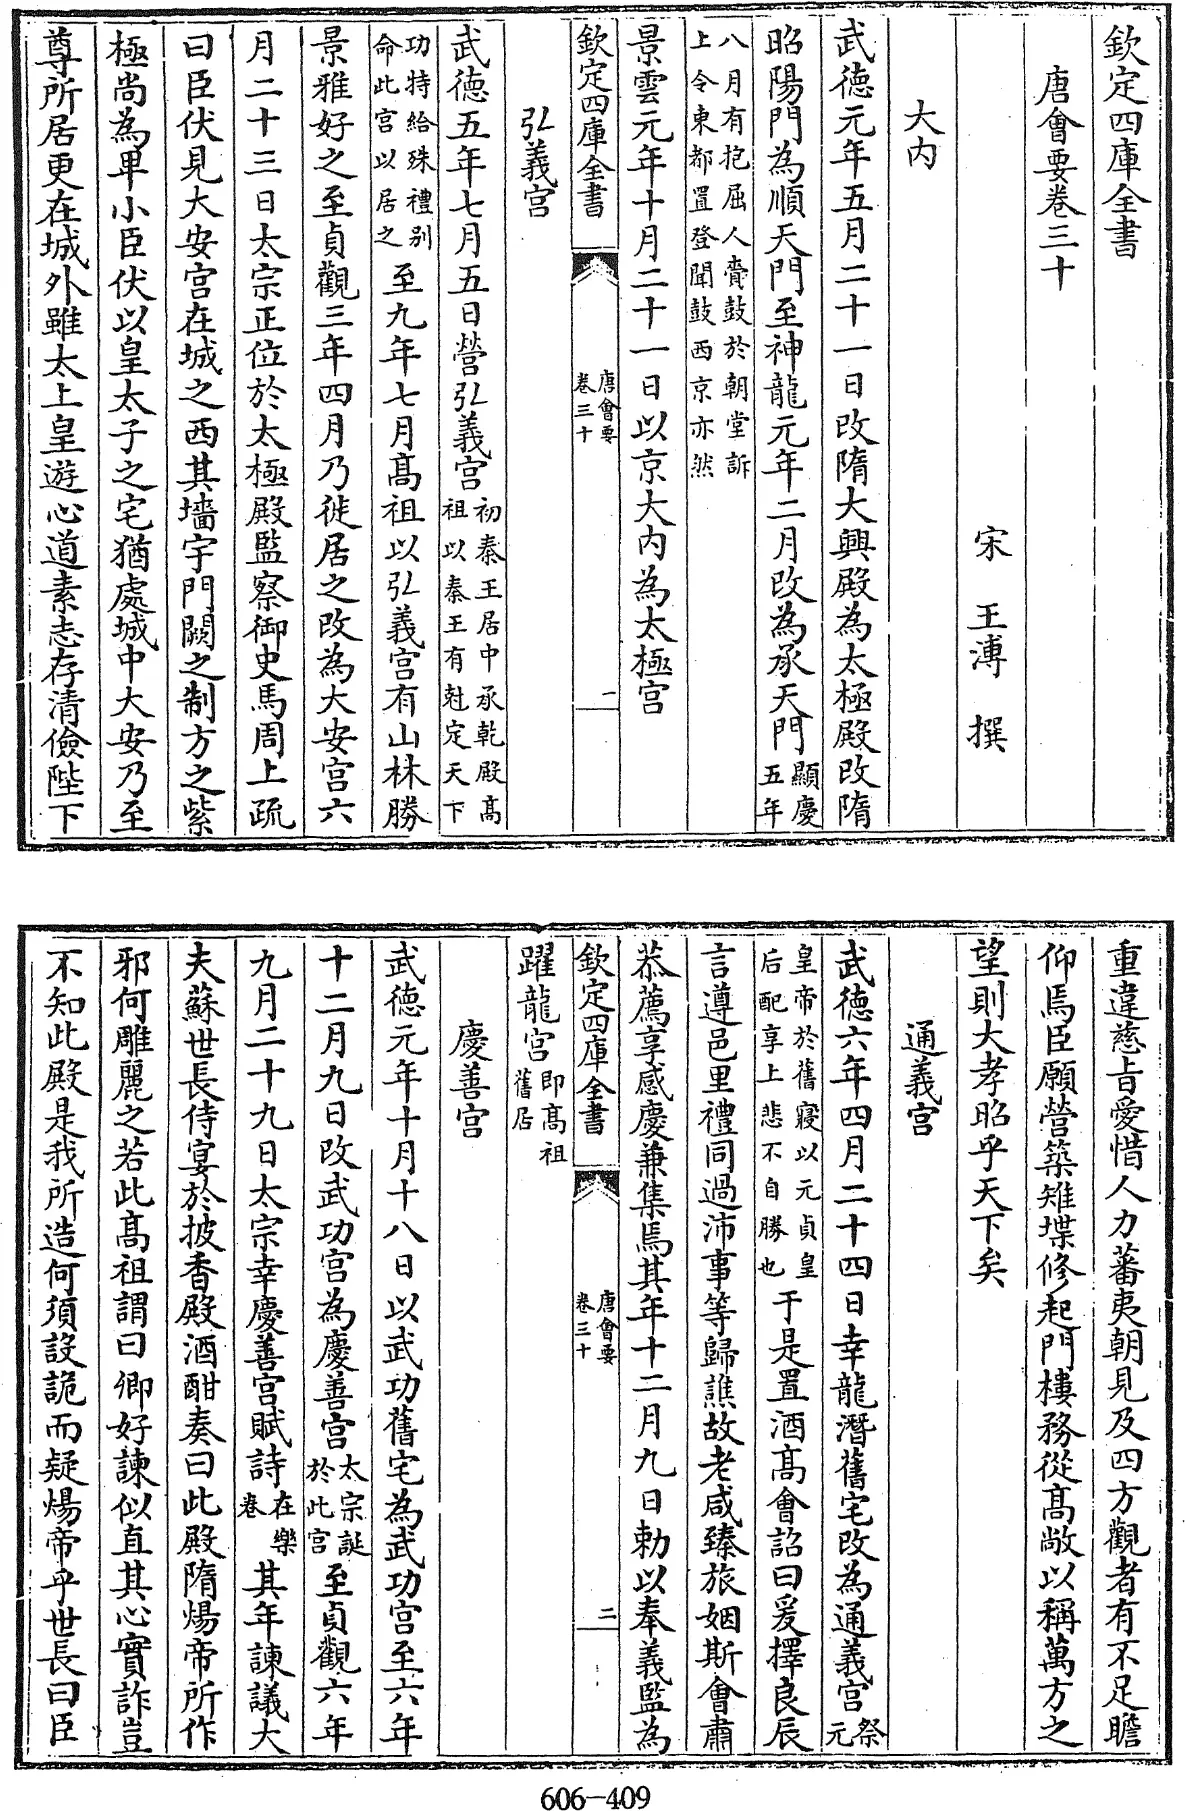 欽定四庫全書
唐會要卷三十
宋 王溥 撰
大内
武德元年五月二十一日改隋大興殿為太極殿改隋
昭陽門為順天門至神龍元年二月改為承天門顯慶五年
八月有抱屈人齎鼓於朝堂訴上令東都置登聞鼓西京亦然
景雲元年十月二十一日以京大内為太極宫
欽定四庫全書 唐會要卷三十 一
弘義宫
武德五年七月五日營弘義宫初秦王居中承乾殿髙祖以秦王有尅定天下
功特給殊禮别命此宫以居之至九年七月髙祖以弘義宫有山林勝
景雅好之至貞觀三年四月乃徙居之改為大安宫六
月二十三日太宗正位於太極殿監察御史馬周上疏
曰臣伏見大安宫在城之西其墻宇門闕之制方之紫
極尚為卑小臣伏以皇太子之宅猶處城中大安乃至
尊所居更在城外雖太上皇遊心道素志存清儉陛下
重違慈旨愛惜人力蕃夷朝見及四方觀者有不足瞻
仰焉臣願營築雉堞修起門樓務從髙敞以稱萬方之
望則大孝昭乎天下矣
通義宫
武德六年四月二十四日幸龍潛舊宅改為通義宫祭元
皇帝於舊寢以元貞皇后配享上悲不自勝也于是置酒髙會詔曰爰擇良辰
言遵邑里禮同過沛事等歸譙故老咸臻旅姻斯會肅
恭薦享感慶兼集焉其年十二月九日勅以奉義監為
欽定四庫全書 唐會要卷三十 二
躍龍宫即髙祖舊居
慶善宫
武德元年十月十八日以武功舊宅為武功宫至六年
十二月九日改武功宫為慶善宫太宗誕於此宫至貞觀六年
九月二十九日太宗幸慶善宫賦詩在樂卷其年諫議大
夫蘇世長侍宴於披香殿酒酣奏曰此殿隋煬帝所作
邪何雕麗之若此髙祖謂曰卿好諫似直其心實詐豈
不知此殿是我所造何須設詭而疑煬帝乎世長曰臣
606-409